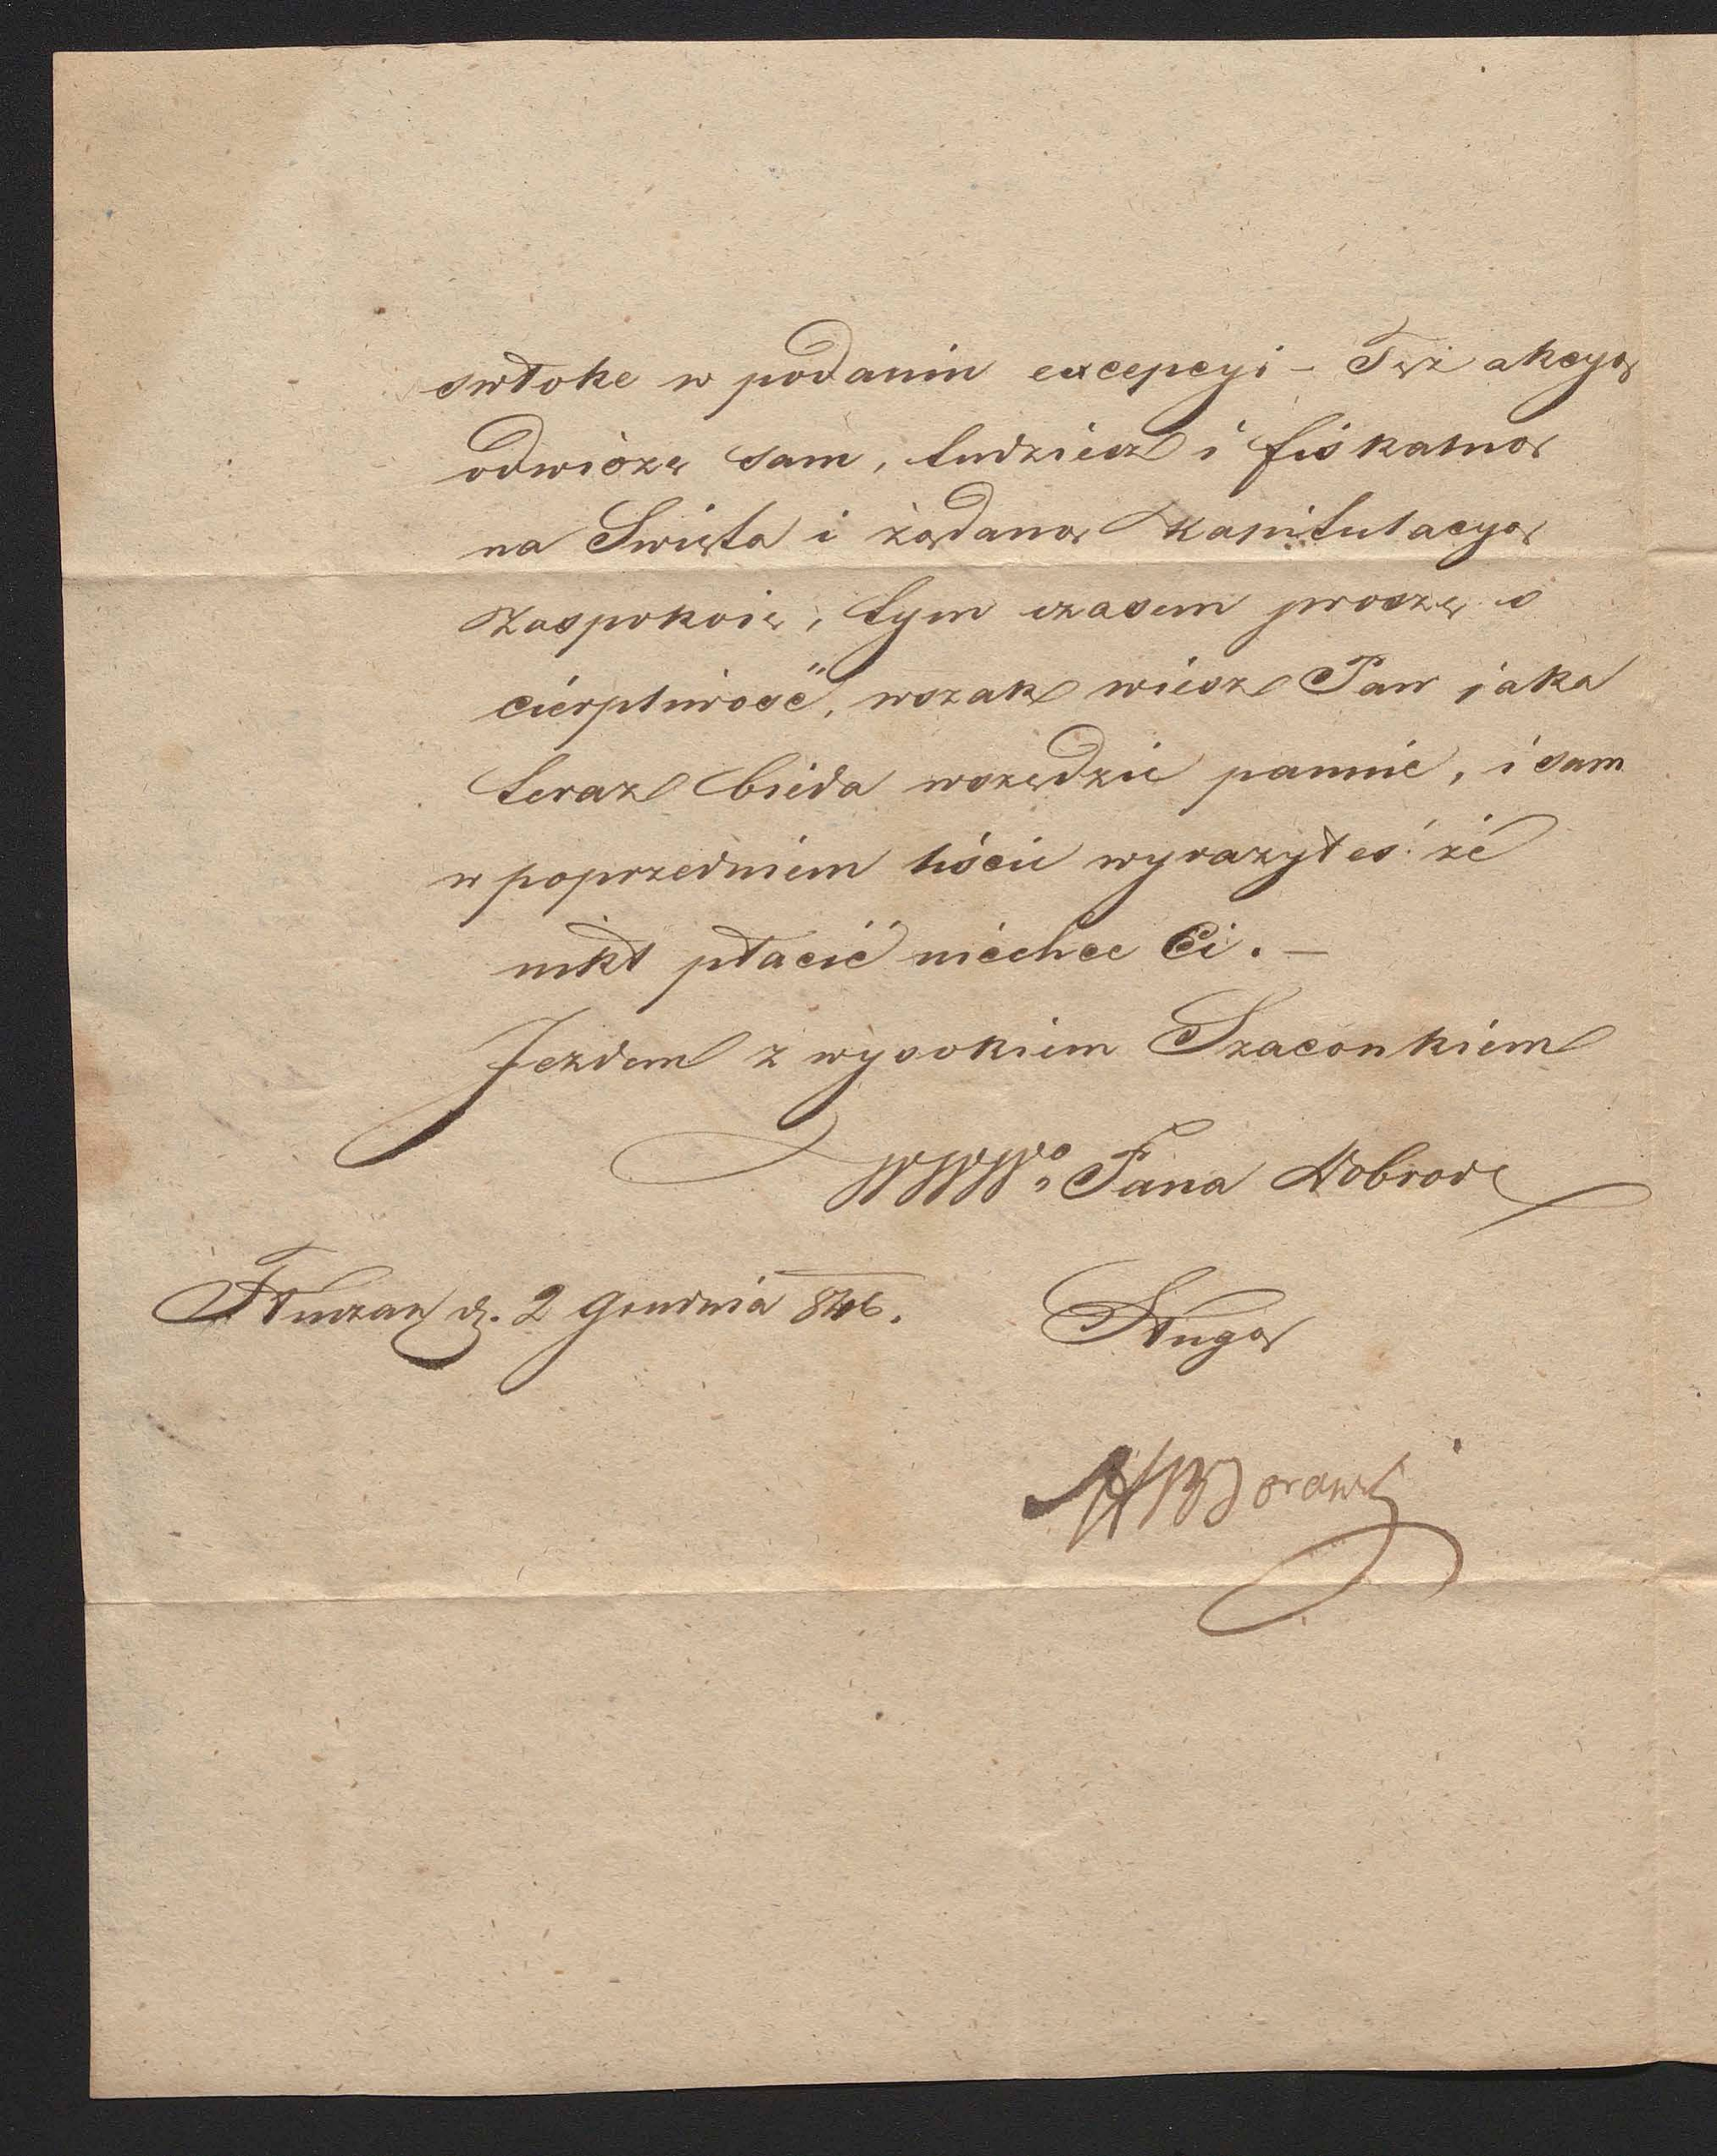 swłoke w podaniu excepcyi – Tęż akcyą
odwiozę sam, tudziesz i fiskalną
na Swięta i żądaną kapitulacyą
zaspokoię, tym czasem proszę o
cierpliwość, wszak wiesz Pan jaka
teraz bieda wszędzie panuie, i sam
w poprzedniem liście wyrazyłeś że
nikt płacić niechce Ci. –
Jezdem z wysokiem Szacunkiem
WWWo Pana Dobrode
d. 2 Grudnia 846.
Sługą